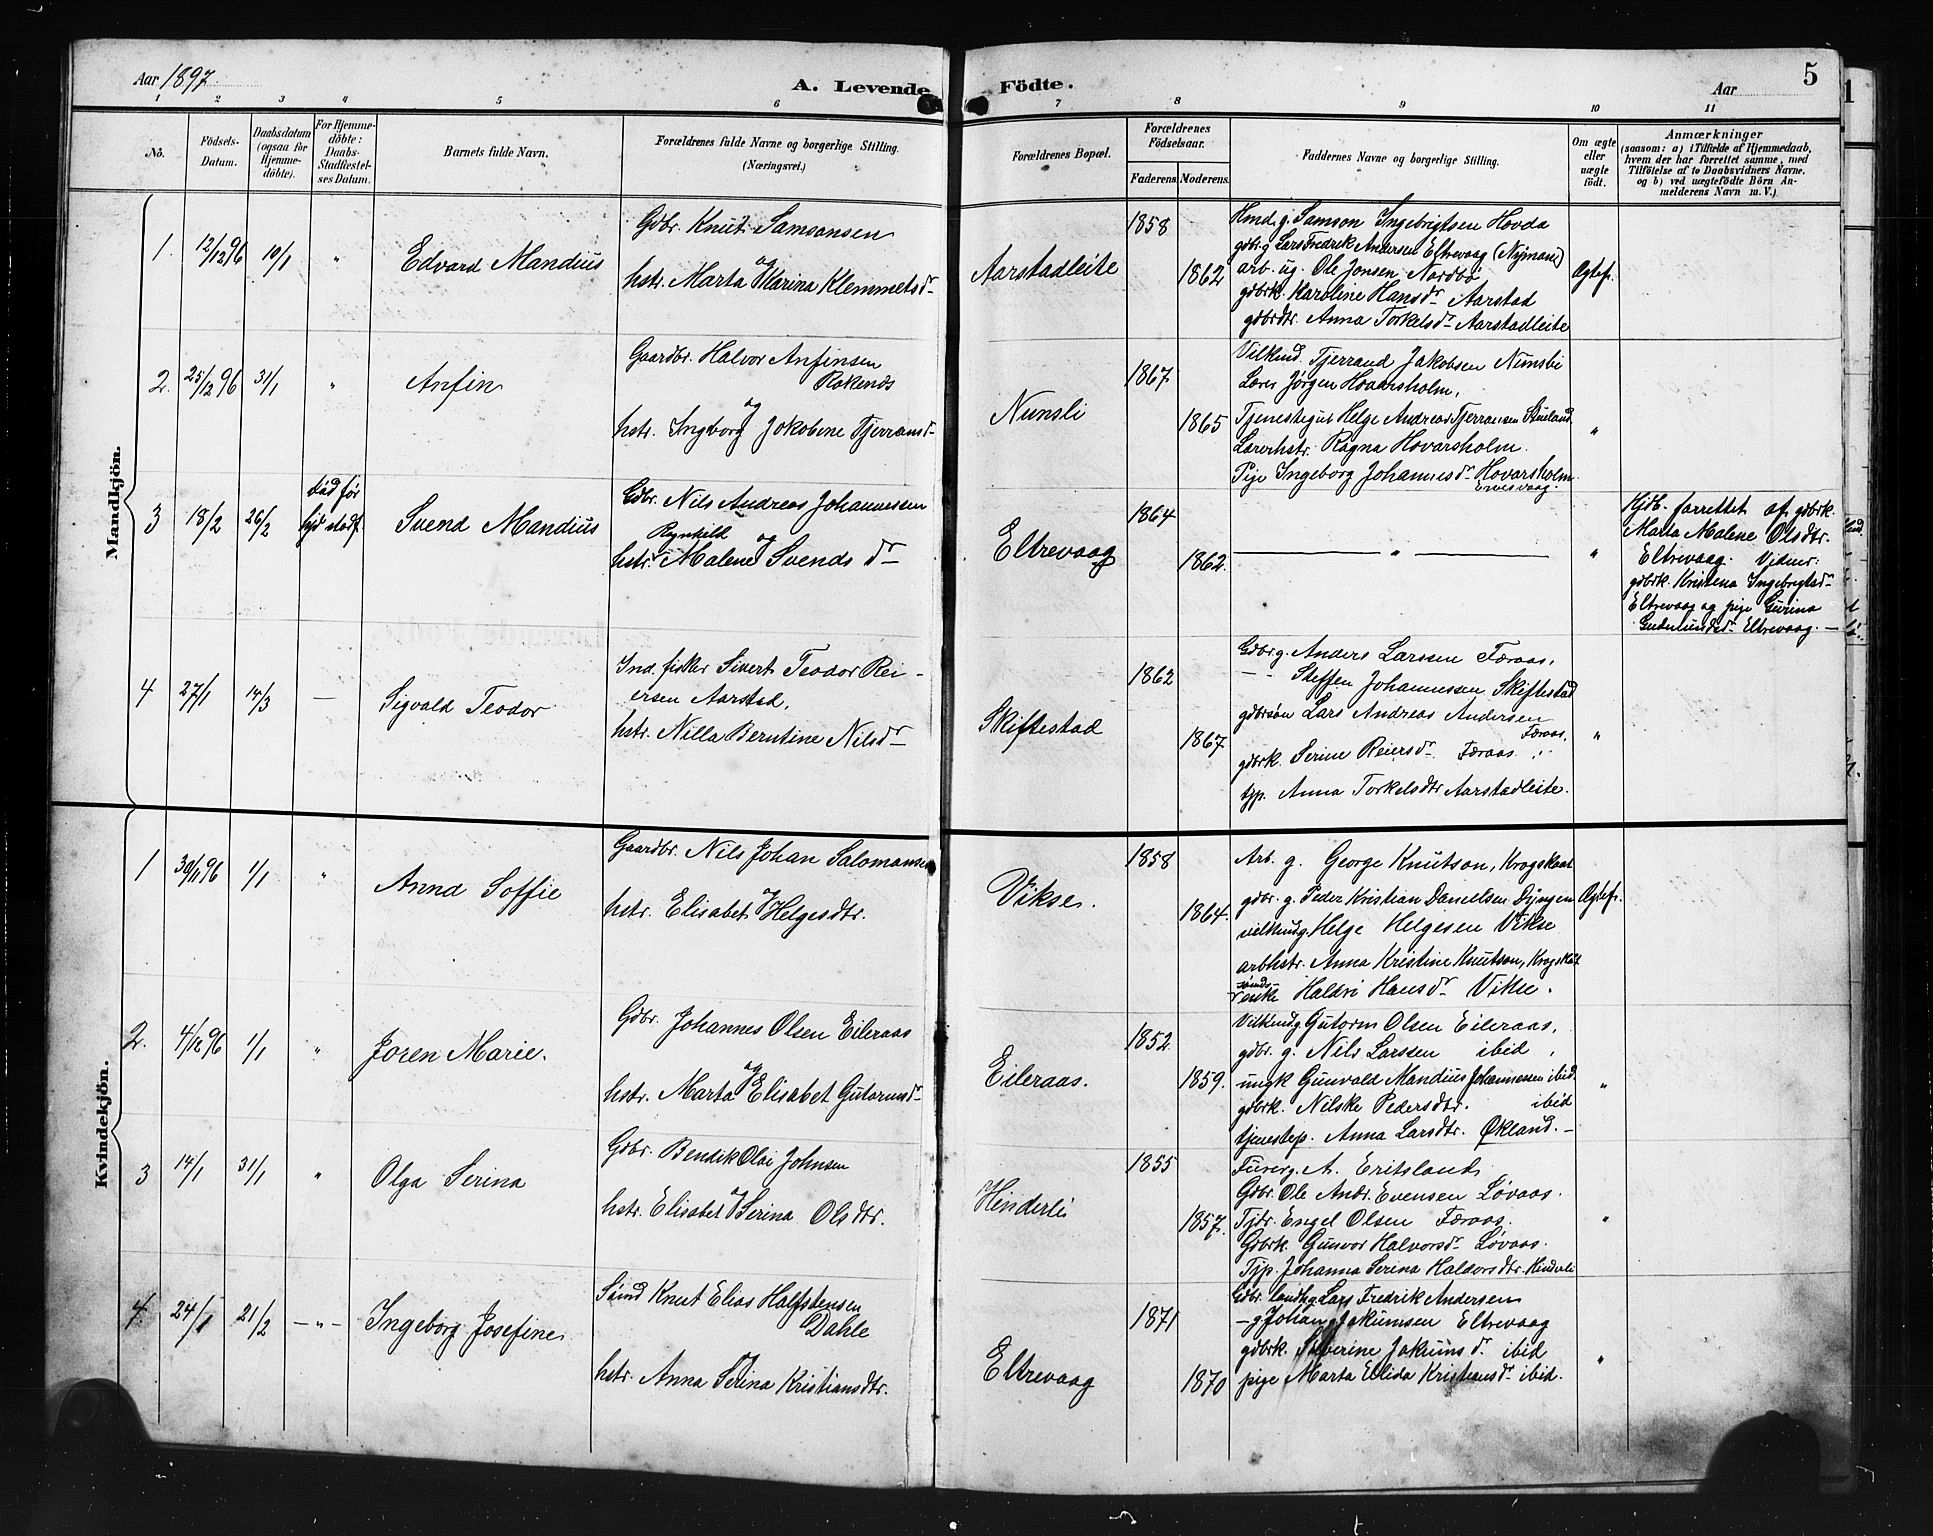 Aar 1897
A. Levende
Födte.
Aar
5
1 2 3 4 5 6 7 8 9 10 11
No.
Födsels-
Datum.
Daabsdatum
(ogsaa for
Hjemme-
döbte).
For Hjemme-
döbte:
Daabs-
Stadfæstel-
ses Datum.
Barnets fulde Navn.
Forældrenes fulde Navne og borgerlige Stilling.
(Næringsvei.)
Forældrenes Bopæl.
Forældrenes
Födselsaar.
Faderens. Moderens.
Faddernes Navne og borgerlige Stilling.
Om ægte
eller
uægte
födt.
Anmærkninger
(saasom: a) i Tilfælde af Hjemmedaab,
hvem der har forrettet samme, med
Tilföielse af to Daabsvidners Navne,
og b) ved uægtefödte Börn An-
melderens Navn m. V.)
Mandkjön.
1. 12/12 96 10/1 " Edvard Mandius
Gdbr. Knut Samsonsen
og
hstr. Marta Karina Klemmetsdr
Aarstadleite
1858
1862
Hmd. g. Samson Ingebrigtsen Hovda
gdbr. g Lars Fredrik Andersen Eltrevaag (Nymane)
arb. ug. Ole Jonsen Nordbø
gdbrk. Karoline Hansdr Aarstad
gdbrdtr. Anna Torkelsdr Aarstadleite
Ægtef.
2. 25/12 96 31/1 " Anfin
Gaardbr. Halvor Anfinsen
Rokends
og
hstr. Ingborg Jakobine Tjerransd
Nunsli
1867
1865
Vilkmd. Tjerrand Jakobsen Nunsli
Lærer Jørgen Hovarsholm,
Tjenestegut Helge Andreas Tjerransen Stueland
Lærerhstr. Ragna Hovarsholm.
Pige Ingeborg Johannesdr Hovarsholm
"
3 18/2 26/2
død før
Svend Mandius
Gdbr. Nils Andreas Johannessen
Ragnhild og
hstr. Malene Svends dr
Eltrevaag
1864
1862.
"
"
Hjdb. forrettet af gdbrk.
Marta Malene Olsdtr.
Eltrevaag. Vidner:
gdbrk. Kristena Ingebrigtsd
Eltrevaag og pige Gurina
Gudmundsd Eltrevaag.
4 27/1 14/3 — Sigvald Teodor
Ind. fisker Sivert Teodor Rei-
ersen Aarstad,
hstr. Nilla Berntine Nilsdr
Skiftestad
1862
1867
Gdbr. g. Anders Larssen Færaas,
- - Steffen Johannessen Skiftestad
gdbrsøn Lars Andreas Andersen
Færaas,
gdbrk. Serine Reiersdr Færaas,
tjp. Anna Torkelsdtr Aarstadleite.
"
Kvindekjön.
1 30/11 96 1/1 " Anna Soffie
Gaardbr. Nils Johan Salomonsen
og
hstr. Elisabet Helgesdtr.
Vikse.
1858
1864.
Arb. g. George Knutson, Krogskaat
gdbr. g. Peder Kristian Danielsen Dyngen
vilkmd g. Helge Helgesen Vikse
arbhstr. Anna Kristine Knutson, Krogskat
enke Haldri Hansdr Vikse.
Ægtef.
2. 4/12 96 1/1 " Joren Marie.
Gdbr. Johannes Olsen Eileraas
og
hstr. Marta Elisabet Gutormsd
Eileraas.
1852.
1859.
Vilkmd g Gutorm Olsen Eileraas,
gdbr. g. Nils Larssen ibid,
ungk Gunvald Mandius Johannessen ibid.
gdbrk. Nilske Pedersdtr. ibid
tjenestep. Anna Larsdtr. Økland. —
"
3 14/1 31/1 " Olga Serina
Gdbr. Bendik Olai Johnsen
og
hstr. Elisabet Serina Olsdtr.
Hinderli
1855
1857.
A. Eritsland
Gdbr. Ole Andr. Evensen Løvaas.
Tjdr. Engel Olsen Færaas.
Gdbrk. Gunvor Halvorsdr Løvaas.
Tjp. Johanna Serina Haldorsdtr. Hinderli
"
4. 24/1 21/2 —"— Ingeborg Josefine
Smd Knut Elias Halfstensen
Dahle
og
hstr. Anna Serina Kristiansdtr.
Eltrevaag
1871
1870
Gdbr. landh g Lars Fredrik Andersen
— g Johan Jakumsen Eltrevaag
gdbrk. Severine Jakumsdr ibid
pige Marta Elida Kristiansdr ibid.
"